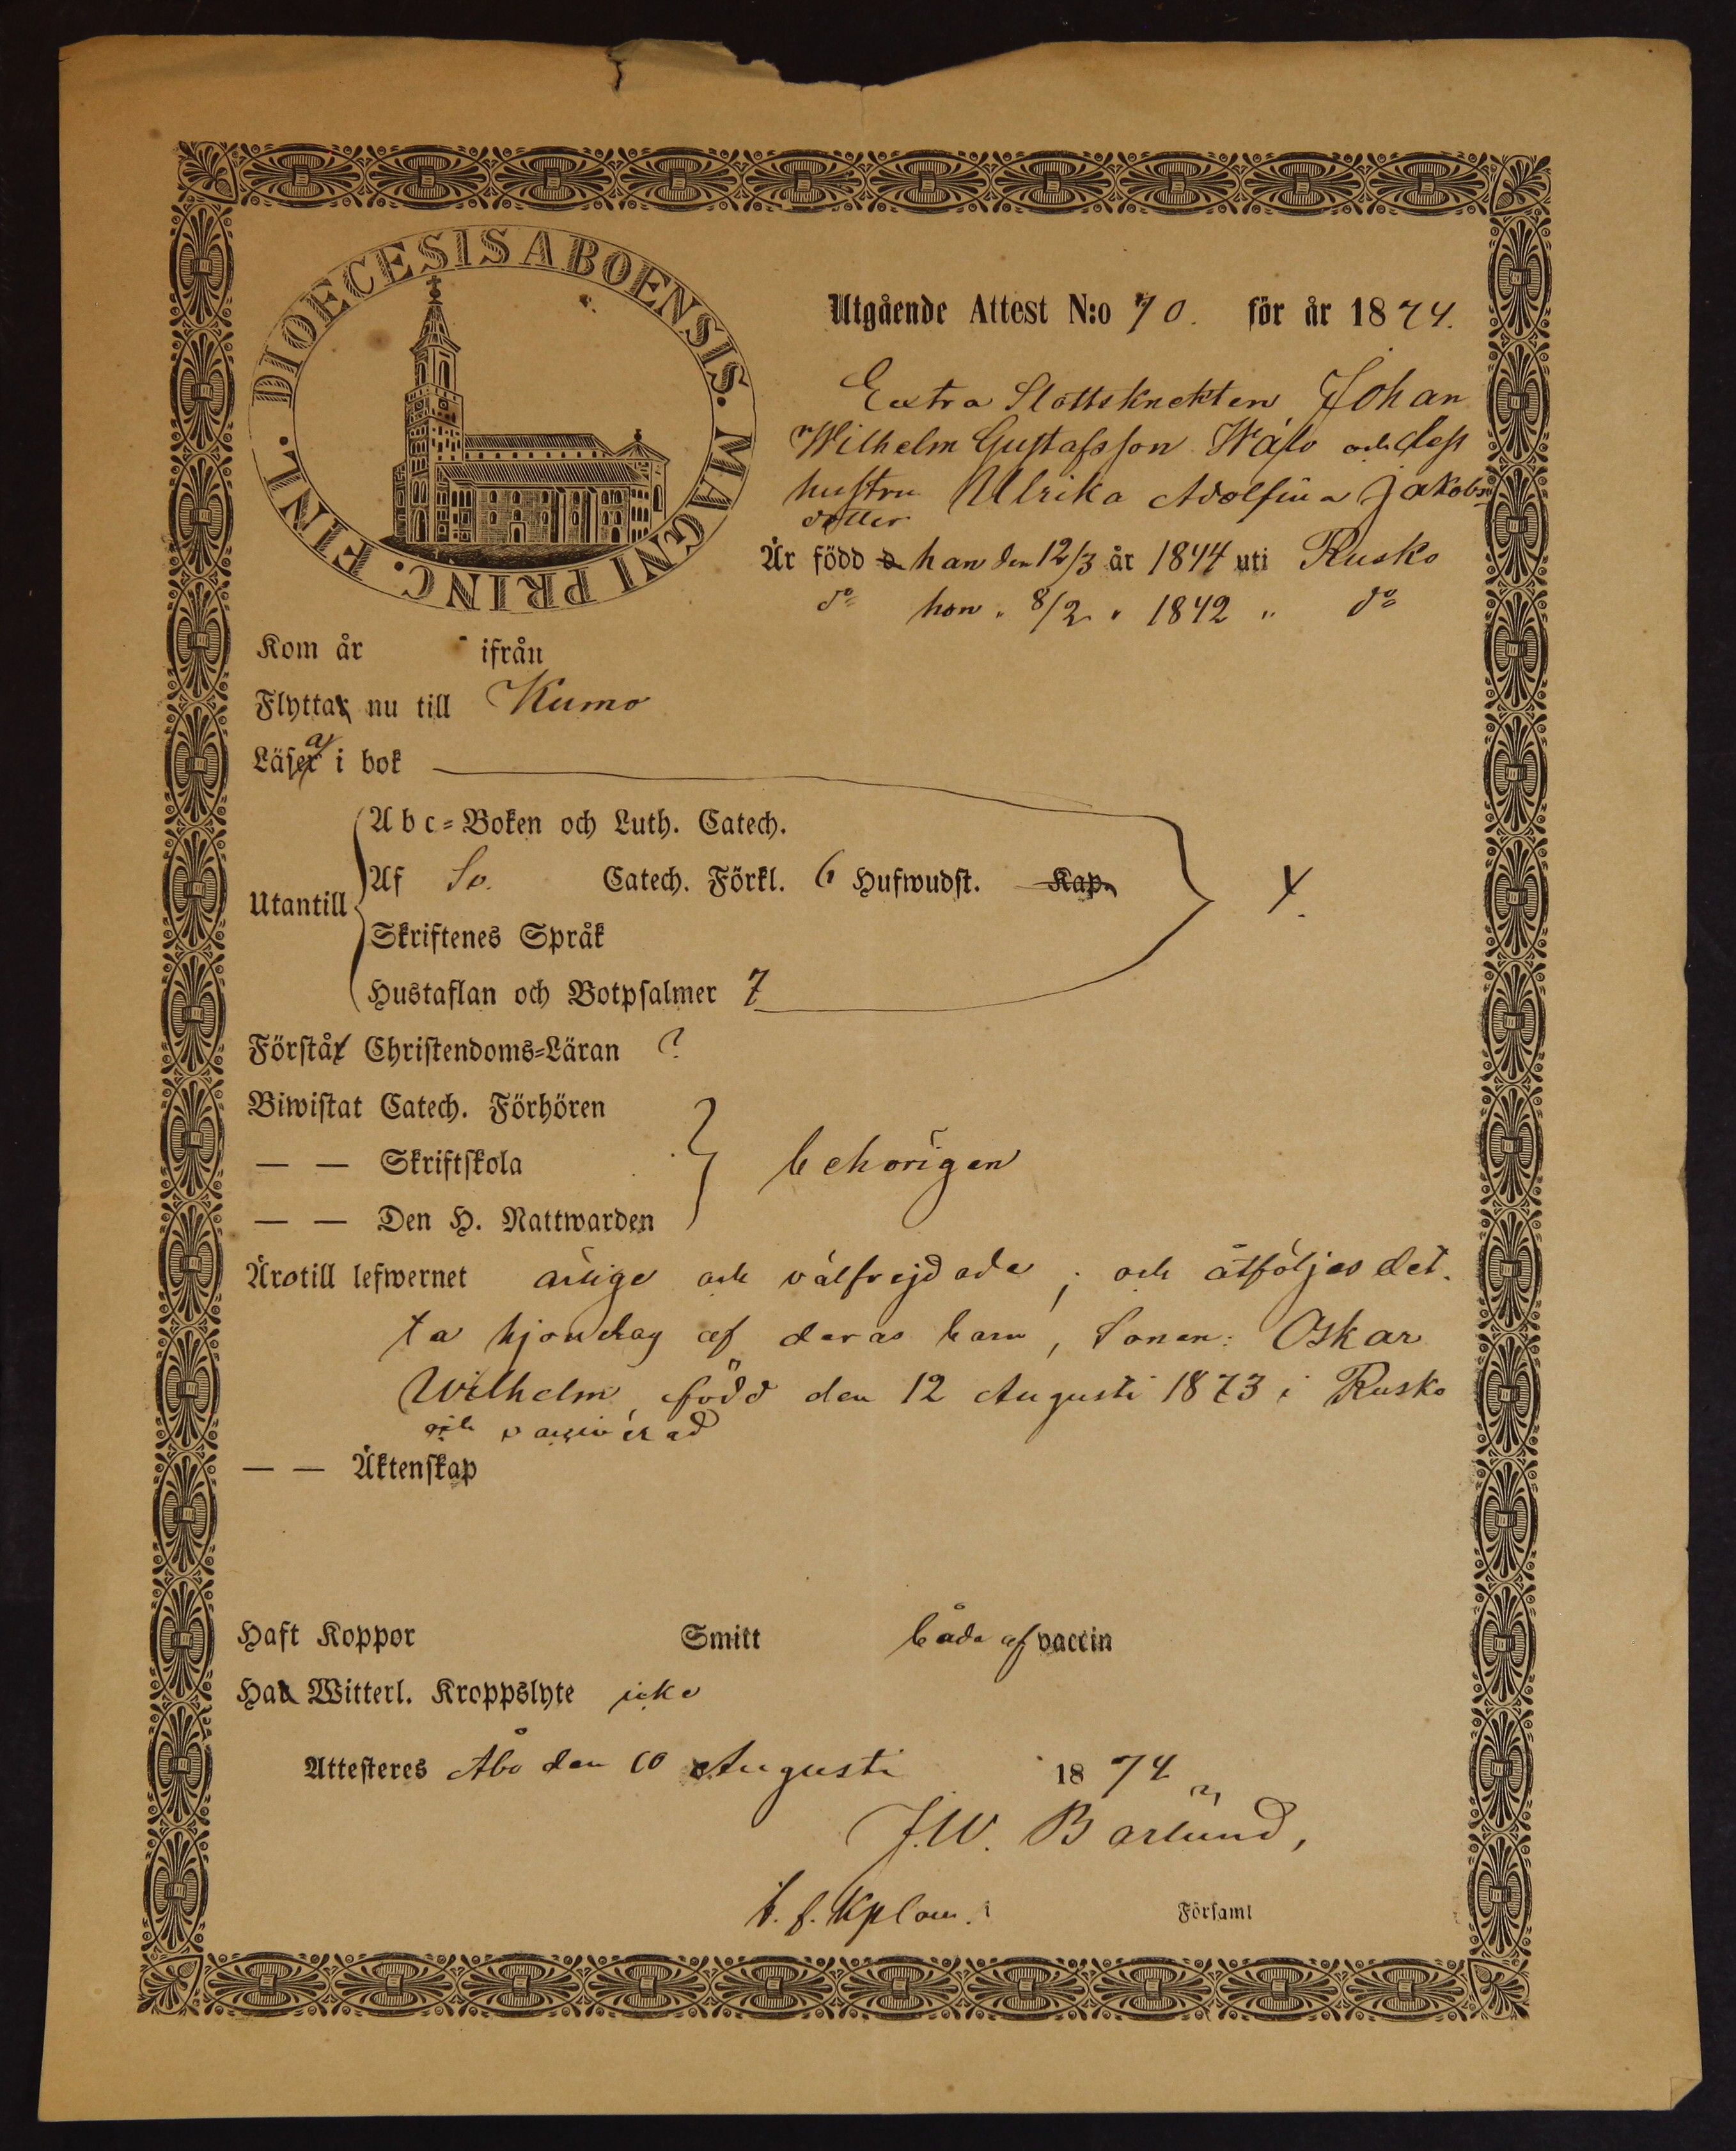 DIOECESIS ABOENSIS. MAGNI PRINC. FINL.
Utgående Attest N:o 70. för år 1874.
Extra Slottsknekten Johan
Wilhelm Gustafsson Walo och dess
hustru Ulrika Adolfina Jakobs
dotter
Är född han den 12/3 år 1844 uti Rusko
do hon " 8/2 " 1842 " do
Kom år ifrån
Flytta nu till Kumo
Läsa i bok
Utantill
Abc-Boken och Luth. Catech.
Af Sv. Catech. Förkl. 6 Hufwudst. Kap.
Skriftenes Språk
Hustaflan och Botpsalmer 7
Förstå Christendoms-Läran ?
Biwistat Catech. Förhören
— — Skriftskola behörigen
— — Den H. Nattwarden
Äro till lefwernet ärlige och välfrejdade; och åtföljes det-
ta hjonelag af deras barn, Sonen: Oskar
Wilhelm, född den 12 Augusti 1873 i Rusko
och vaccinerad
— — Äktenskap
Haft Koppor Smitt båda af vaccin
Ha Witterl. Kroppslyte icke
Attesteres Åbo den 10 Augusti 1874
J.W. Bärlund,
t. f. Kplan. i Församl